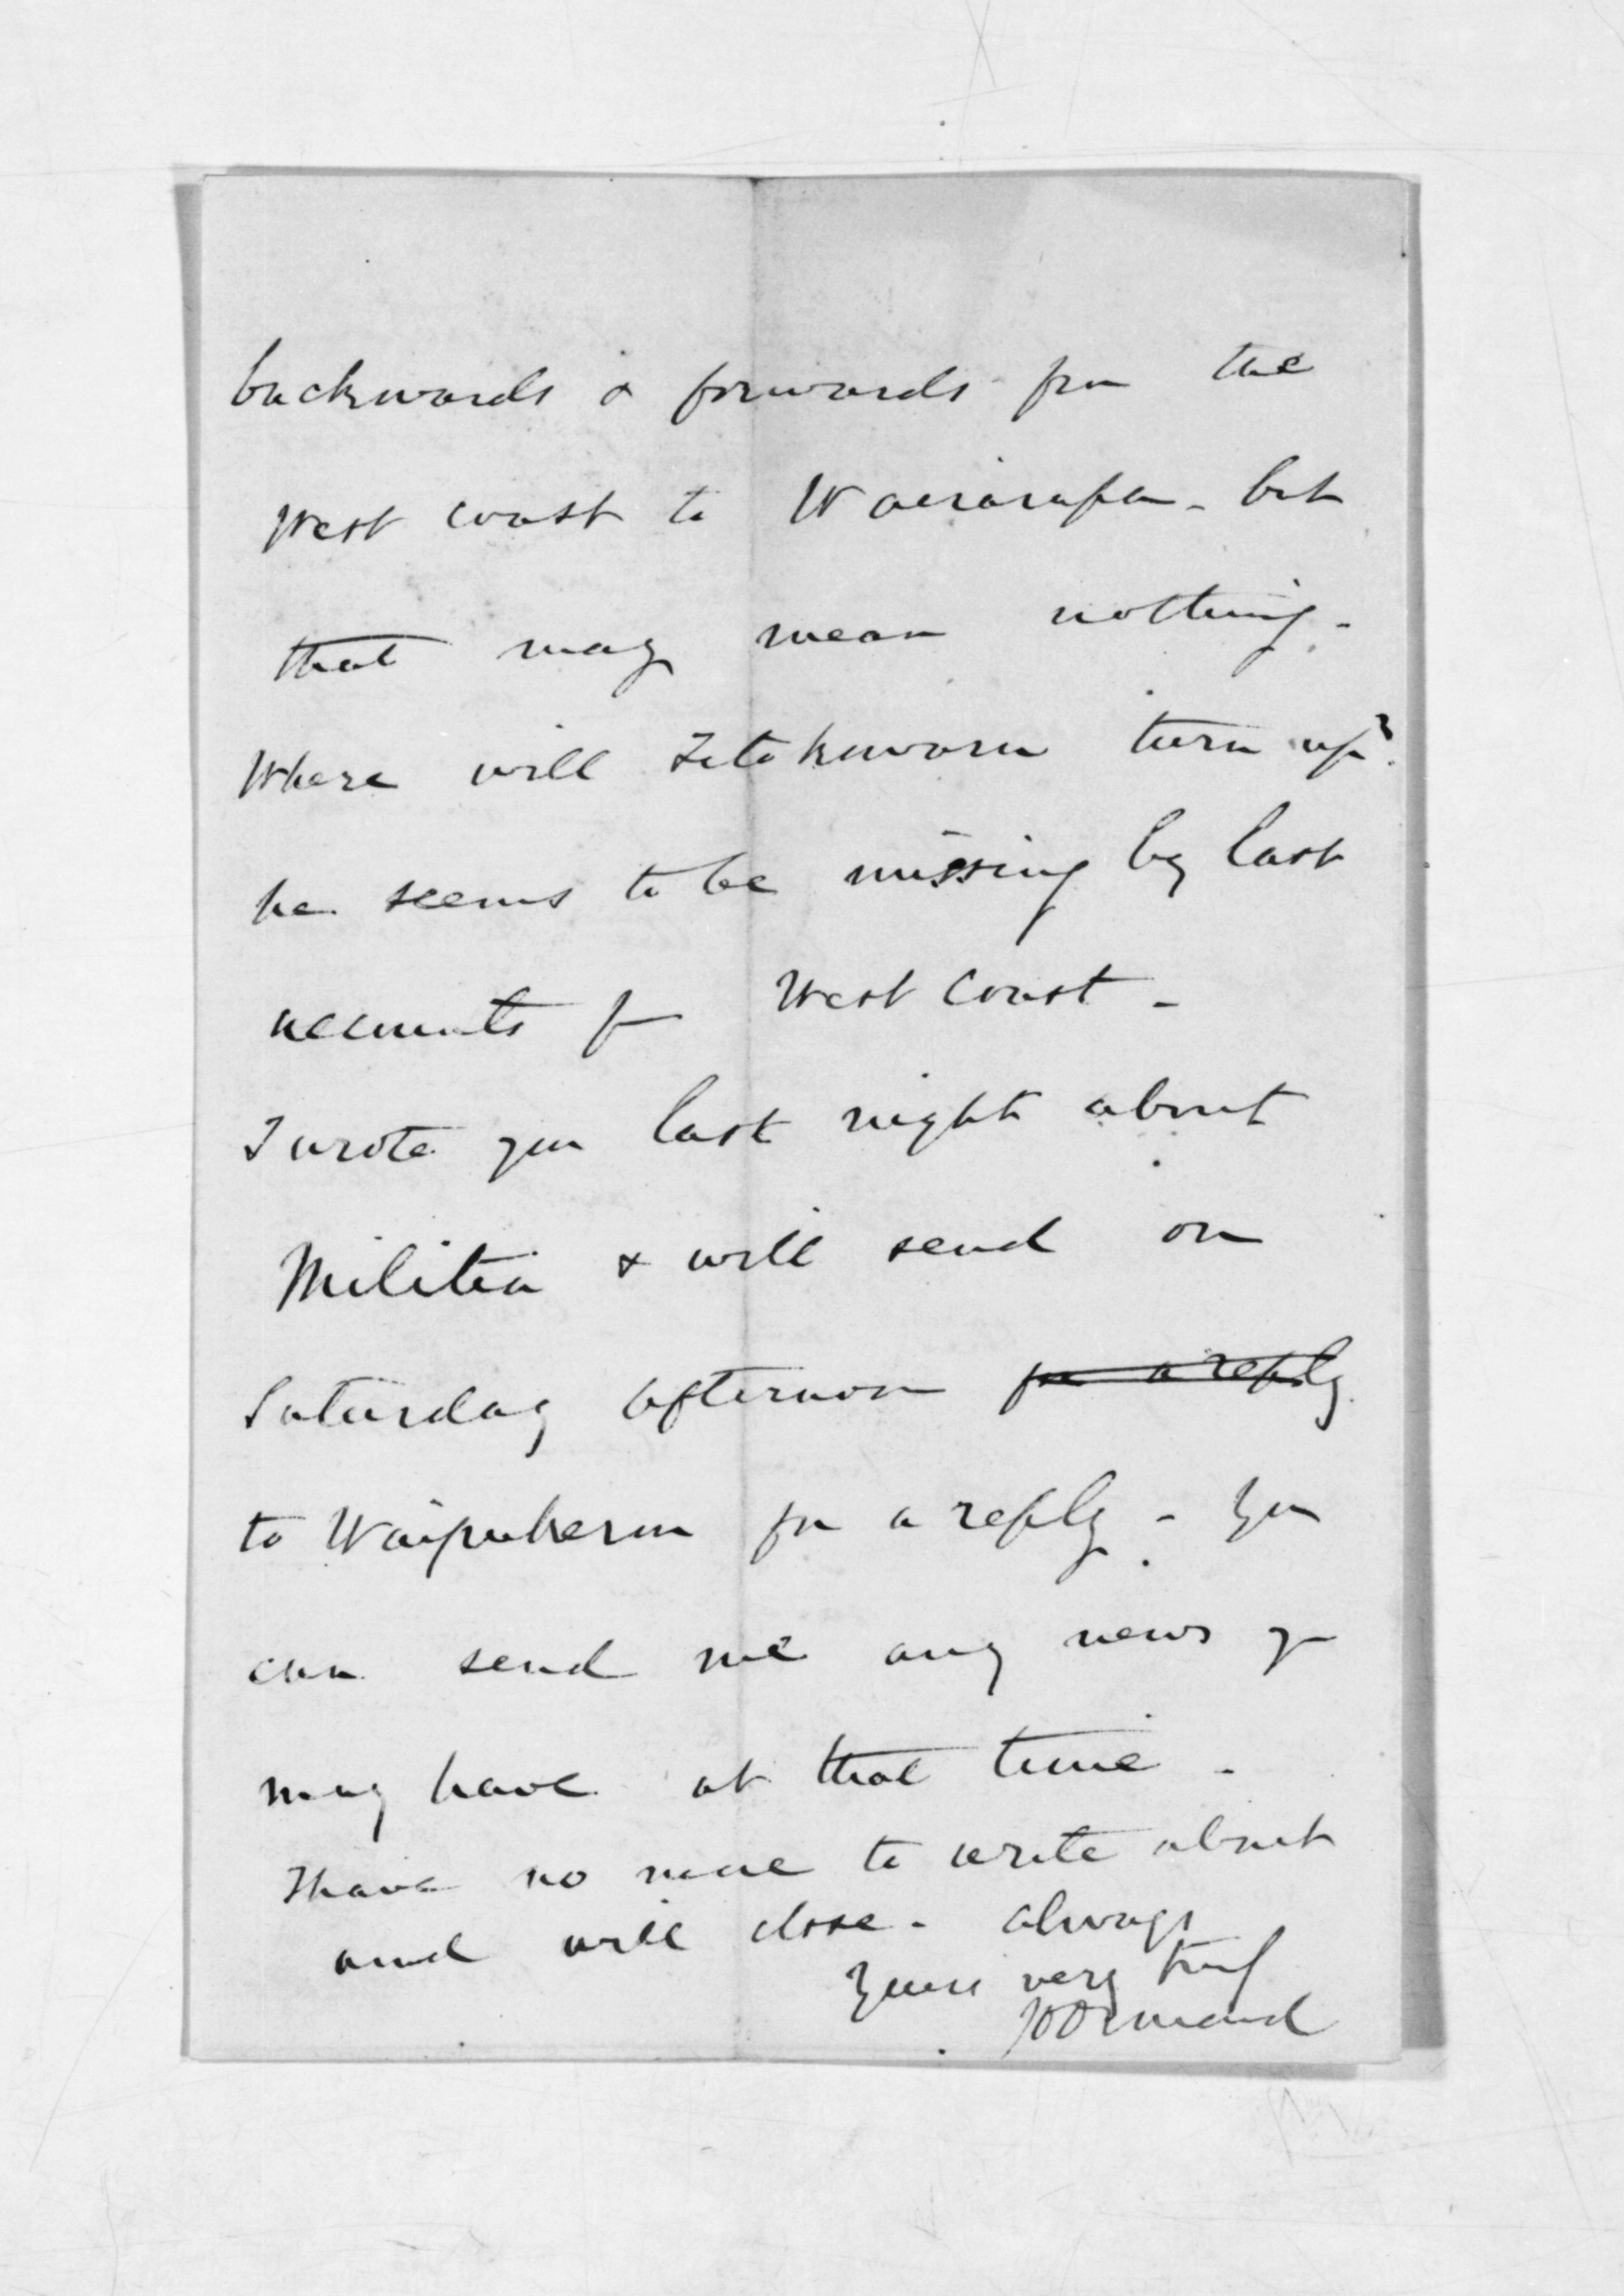 backwards & forwards from the
West Coast to Wairarapa - but
that may mean nothing -
Where will Titokuwaru turn up?
he seems to be missing by last
accounts from West Coast -
I wrote you last night about
Militia & will send on
Saturday afternoon for a reply
to Waipukurau for a reply - You
can send me any news you
may have at that time -
I have no more to write about
and will close - Always
Yours very truly
JD Ormond